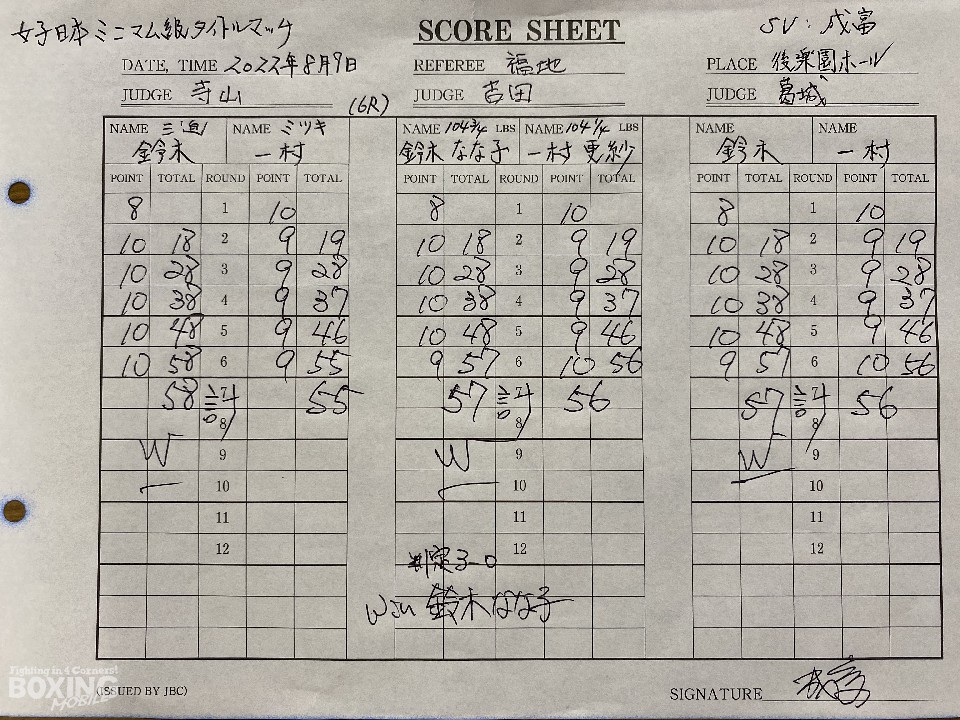 女子日本ミニマム級タイトルマッチ
SCORE SHEET
SV:成富
DATE, TIME 2022年8月9日 REFEREE 福地 PLACE 後楽園ホール
JUDGE 寺山 (6R) JUDGE 吉田 JUDGE 葛城
NAME 三迫 NAME ミツキ NAME 104 3/4 LBS NAME 104 1/4 LBS NAME NAME
鈴木 一村 鈴木なな子 一村更紗 鈴木 一村
POINT TOTAL ROUND POINT TOTAL POINT TOTAL ROUND POINT TOTAL POINT TOTAL ROUND POINT TOTAL
8 1 10 8 1 10 8 1 10
10 18 2 9 19 10 18 2 9 19 10 18 2 9 19
10 28 3 9 28 10 28 3 9 28 10 28 3 9 28
10 38 4 9 37 10 38 4 9 37 10 38 4 9 37
10 48 5 9 46 10 48 5 9 46 10 48 5 9 46
10 58 6 9 55 9 57 6 10 56 9 57 6 10 56
58 55 57 56 57 56
8 8 8
W 9 W 9 W 9
10 10 10
11 11 11
12 12 12
判定3-0
Win 鈴木なな子
Fighting in 4 Corners!
BOXING
MOBILE
(ISSUED BY JBC)
SIGNATURE 成富